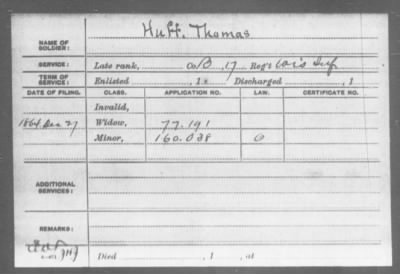 NAME OF SOLDIER: Huff, Thomas
SERVICE: Late rank, Co. B, 17 Reg't Inf
TERM OF SERVICE: Enlisted , 1 Discharged , 1
DATE OF FILING. CLASS. APPLICATION NO. LAW. CERTIFICATE NO.
Invalid,
1864 Dec 27 Widow, 77.191
Minor, 160.038
ADDITIONAL SERVICES:
REMARKS:
Died , 1 , at